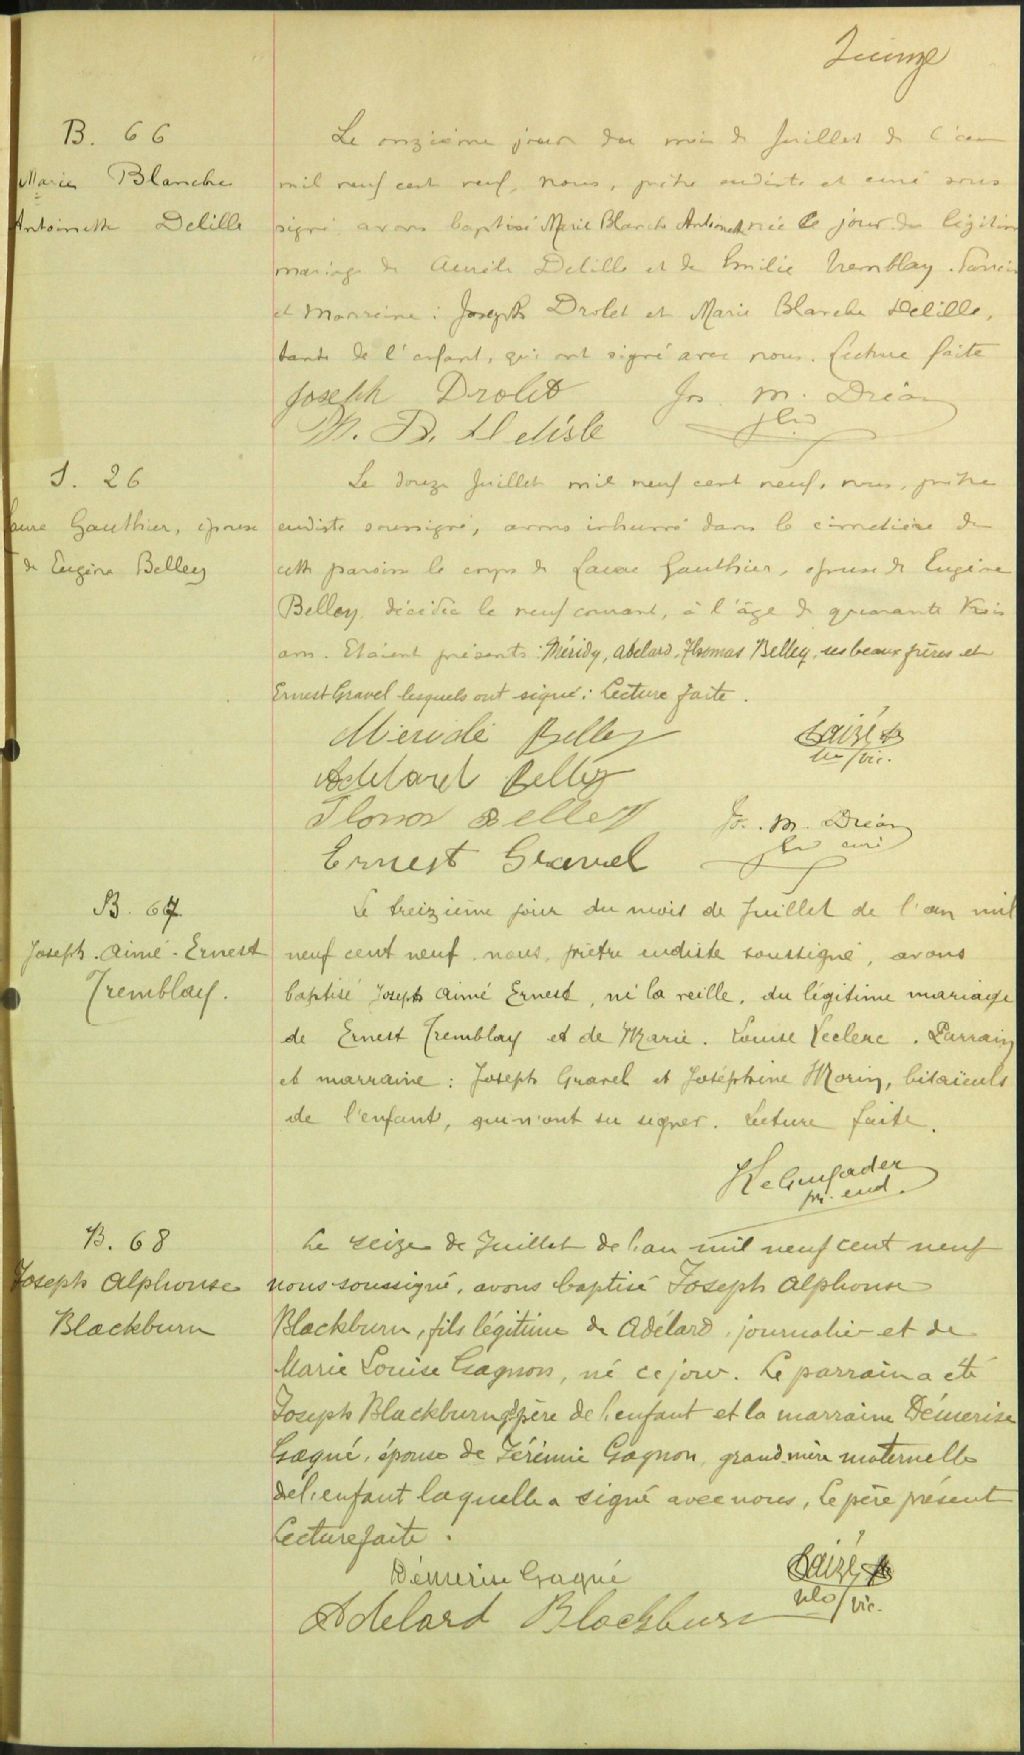 Quinze
B. 66
Marie Blanche
Antoinette Delille
Le onzième jour du mois de Juillet de l'an
mil neuf cent neuf, nous, prêtre eudiste et curé sous
signé, avons baptisé Marie Blanche Antoinett née ce jour du légitime
mariage de Aurèle Delille et de Emilie Tremblay. Parrain
et Marraine : Joseph Drolet et Marie Blanche Delille,
tante de l'enfant, qui ont signé avec nous. Lecture faite
Joseph Drolet Jos. M. Dréan
M. B. Delisle
S. 26
Laure Gauthier, épouse
de Eugène Belley
Le douze Juillet mil neuf cent neuf, nous, prêtre
eudiste soussigné, avons inhumé dans le cimetière de
cette paroisse le corps de Laure Gauthier, épouse de Eugène
Belley, décédée le neuf courant, à l'âge de quarante trois
ans. Etaient présents : Méridy, Adélard, Thomas Belley, ses beaux frères et
Ernest Gravel lesquels ont signé : Lecture faite.
Méridé Belley
Adélard Belley
vic.
Belley
Jos. M. Dréan
curé
Ernest Gravel
B. 67
Joseph - Aimé - Ernest
Tremblay.
Le treizième jour du mois de Juillet de l'an mil
neuf cent neuf, nous, prêtre eudiste soussigné, avons
baptisé Joseph Aimé Ernest, né la veille, du légitime mariage
de Ernest Tremblay et de Marie. Louise Leclerc. Parrain
et marraine : Joseph Gravel et Joséphine Morin, bisaïeuls
de l'enfant, qui n'ont su signer. Lecture faite.
pr. eud.
B. 68
Joseph Alphonse
Blackburn
Le seize de Juillet de l'an mil neuf cent neuf
nous soussigné, avons baptisé Joseph Alphonse
Blackburn, fils légitime de Adélard, journalier et de
Marie Louise Gagnon, né ce jour. Le parrain a été
Joseph Blackburn père de l'enfant et la marraine Démerise
Gagné, épouse de Jérémie Gagnon, grand mère maternelle
de l'enfant laquelle a signé avec nous, le père présent
Lecture faite.
Démerise Gagné
vic.
Adelard Blackburn